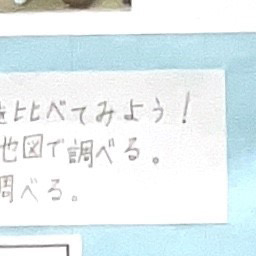 を比べてみよう!
地図で調べる。
調べる。